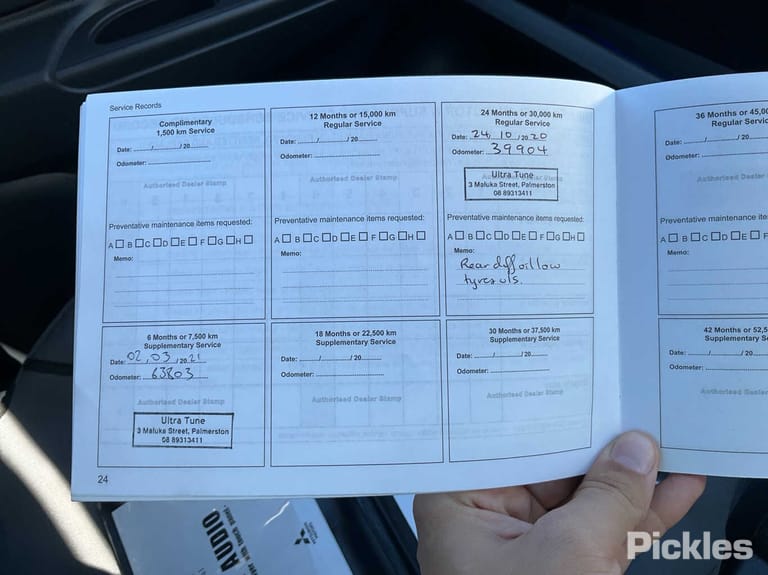 Service Records
Complimentary
1,500 km Service
Date: ....../....../20......
Odometer: ......
Authorised Dealer Stamp
Preventative maintenance items requested:
A☐ B☐ C☐ D☐ E☐ F☐ G☐ H☐
Memo:
12 Months or 15,000 km
Regular Service
Date: ....../....../20......
Odometer: ......
Authorised Dealer Stamp
Preventative maintenance items requested:
A☐ B☐ C☐ D☐ E☐ F☐ G☐ H☐
Memo:
24 Months or 30,000 km
Regular Service
Date: 24/10/2020
Odometer: 39904
Ultra Tune
3 Maluka Street, Palmerston
08 89313411
Preventative maintenance items requested:
A☐ B☐ C☐ D☐ E☐ F☐ G☐ H☐
Memo:
Rear diff oil low
tyres u/s.
36 Months or 45,00
Regular Serv
Date: ....../....../20
Odometer: ......
Authorised Dealer S
Preventative maintenance ite
A☐ B☐ C☐ D☐ E☐ F
Memo:
6 Months or 7,500 km
Supplementary Service
Date: 02/03/2021
Odometer: 63803
Ultra Tune
3 Maluka Street, Palmerston
08 89313411
18 Months or 22,500 km
Supplementary Service
Date: ....../....../20......
Odometer: ......
Authorised Dealer Stamp
30 Months or 37,500 km
Supplementary Service
Date: ....../....../20......
Odometer: ......
Authorised Dealer Stamp
42 Months or 52,5
Supplementary S
Date: ....../....../20
Odometer: ......
Authorised Dealer
24
AUDIO
Pickles